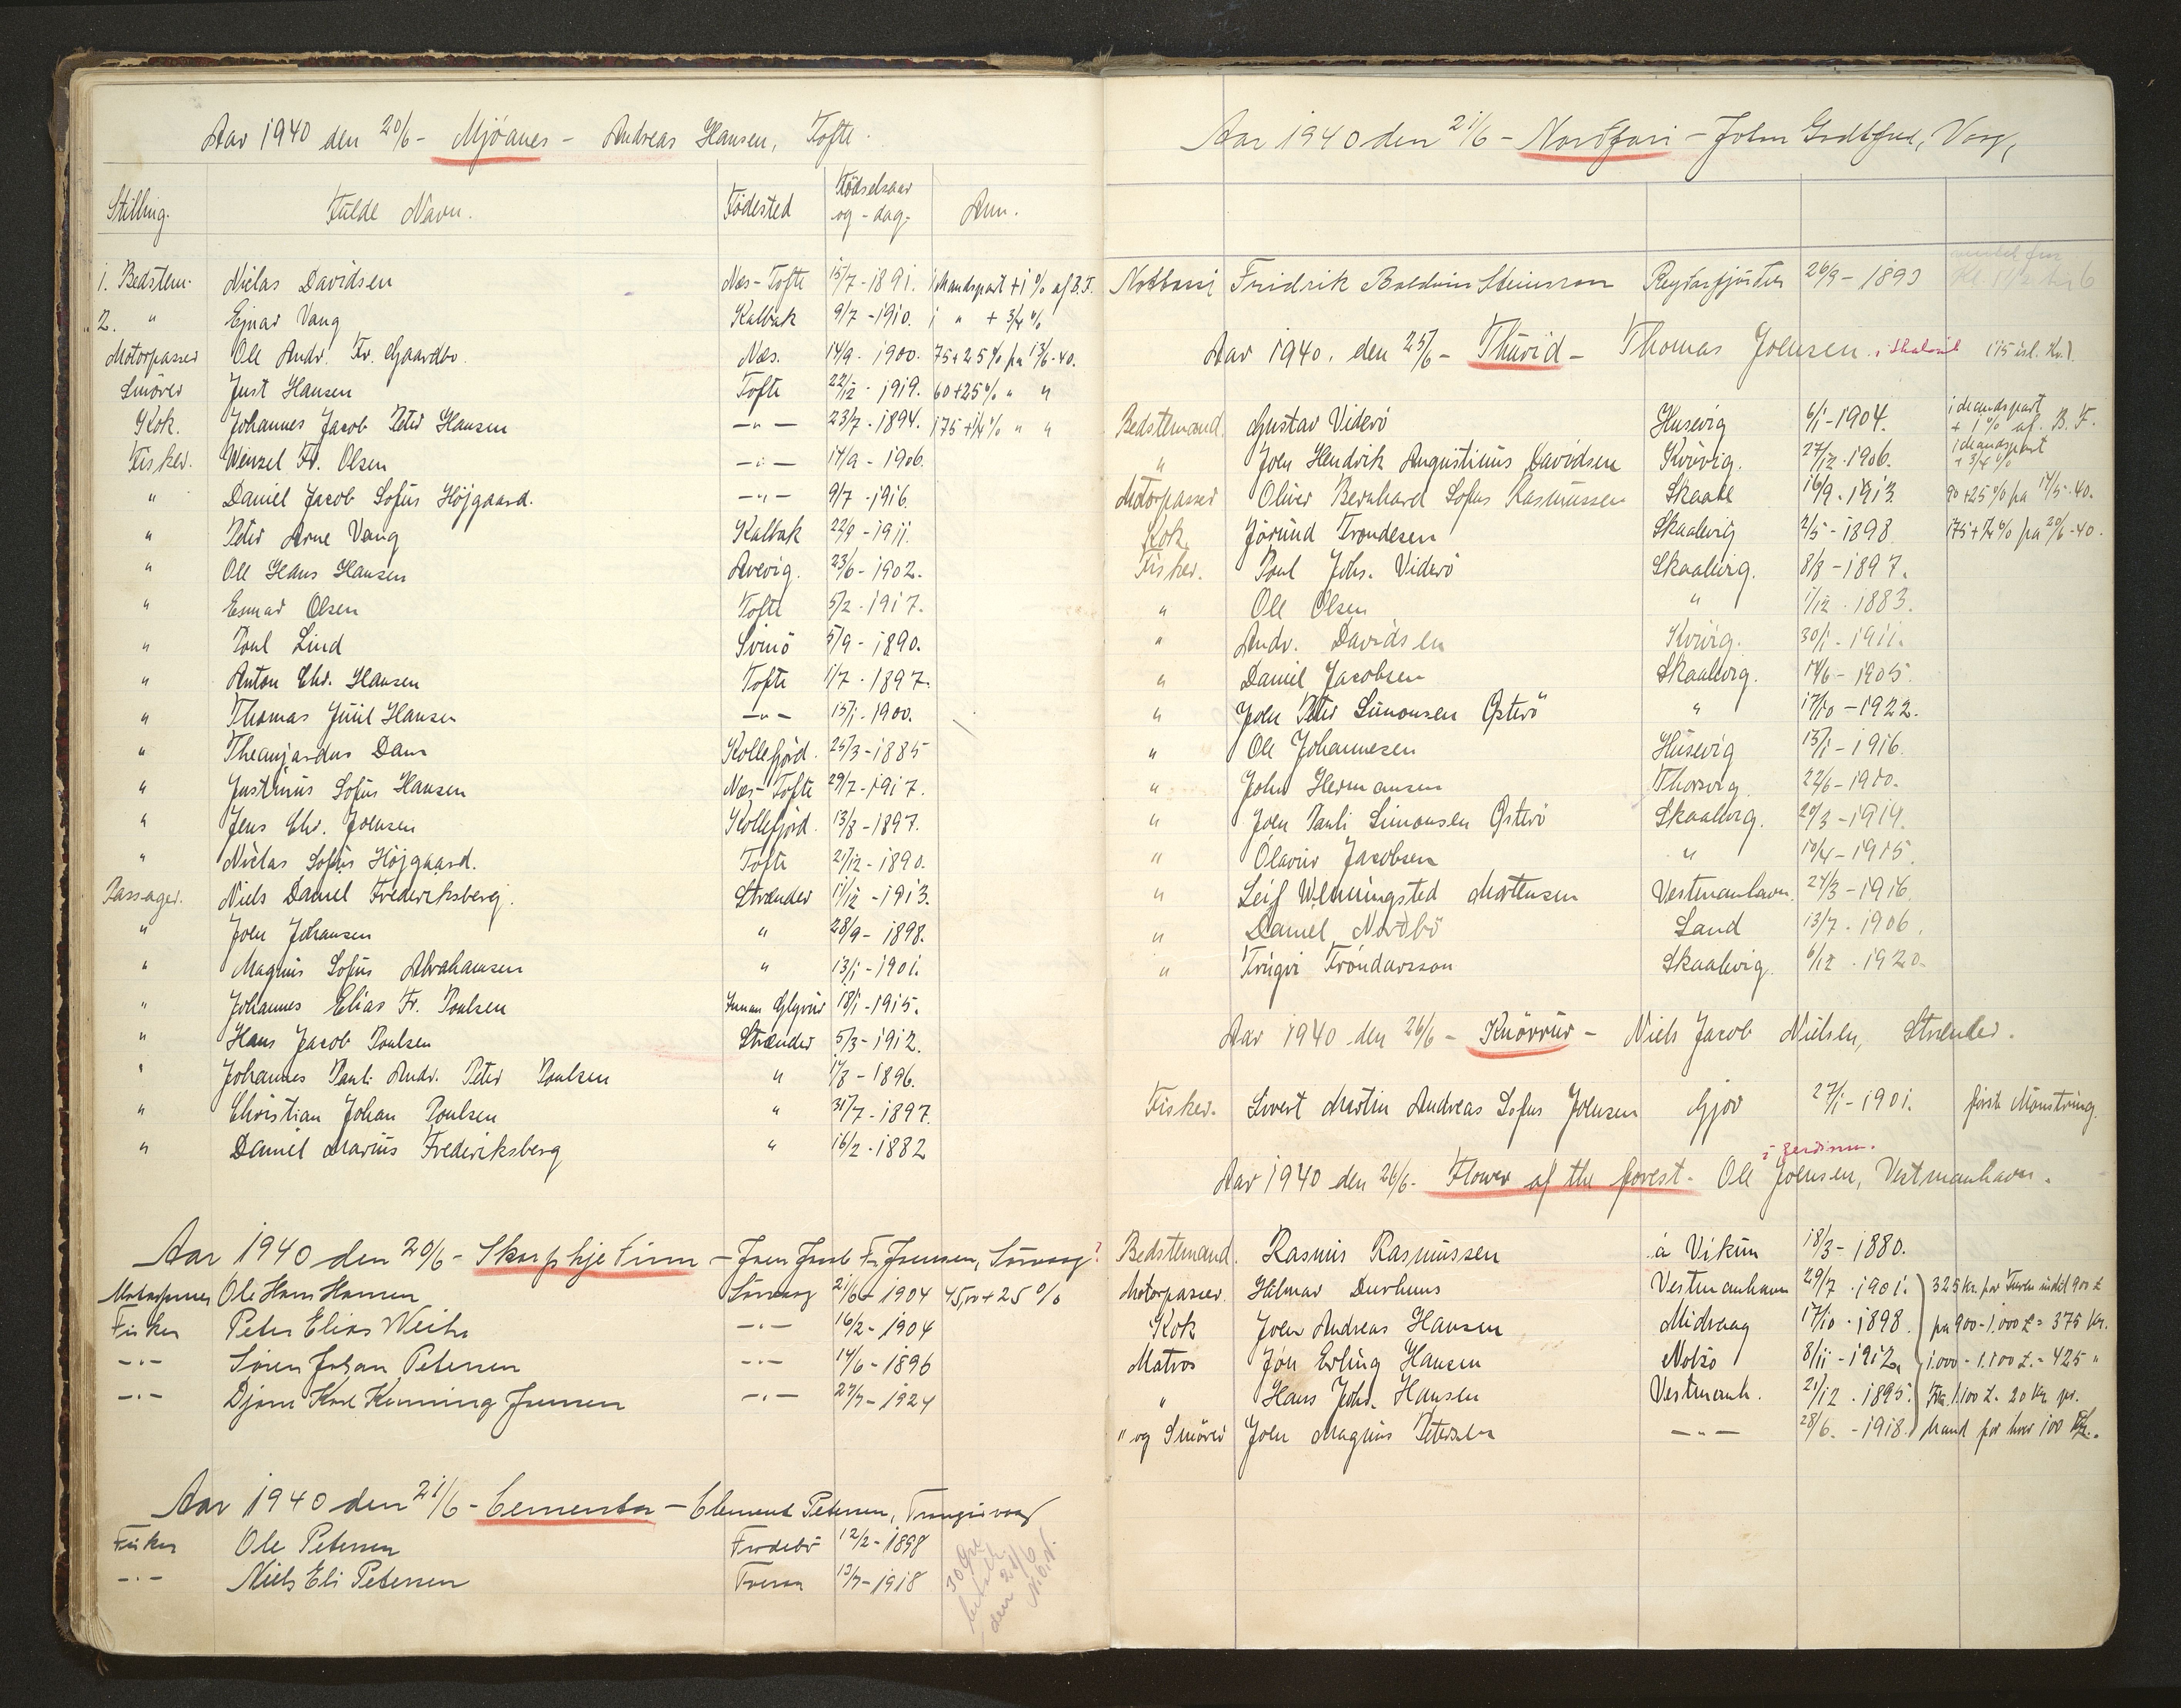 Aar 1940 den 20/6 - Mjóanes - Andreas Hansen, Tofte.
Stilling. Fulde Navn. Födested Födselsaar og - dag. Anm.
1. Bedstem. Niclas Davidsen Næs-Tofte 15/7 - 1891. 1 Mandspart + 1 % af B.F.
2. " Ejnar Vang Kalbak 9/7 - 1910. 1 " + 3/4 %
Motorpasser Ole Andr. Fr. Gaardbo. Næs. 14/9 - 1900. 75 + 25 % fra 13/6-40.
Smörer Just Hansen Tofte 22/12 - 1919. 60 + 25 % " "
Kok. Johannes Jacob Peter Hansen -"- 23/7 - 1894. 175 + 1/4 % " "
Fisker. Wenzel Fr. Olsen -"- 14/9 - 1906.
" Daniel Jacob Sofus Höjgaard. -"- 9/7 - 1916.
" Peter Arne Vang Kalbak 22/9 - 1911.
" Ole Hans Hansen Arevig. 23/6 - 1902.
" Esmar Olsen Tofte 5/2 - 1917.
" Poul Lind Svinö 5/9 - 1890.
" Anton Chr. Hansen Tofte 1/7 - 1897.
" Thomas Juul Hansen -"- 15/1 - 1900.
" Theangardus Dam Kollefjord. 25/3 - 1885
" Justinus Sofus Hansen Næs-Tofte 29/7 - 1917.
" Jens Chr. Joensen Kollefjord. 13/8 - 1897.
" Niclas Sofus Höjgaard. Tofte 21/12 - 1890.
Passager. Niels Daniel Frederiksberg. Strænder 11/12 - 1913.
" Joen Johansen " 28/9 - 1898.
" Magnus Sofus Abrahamsen " 13/1 - 1901.
" Johannes Elias Fr. Poulsen Innan Glyvur 18/1 - 1915.
" Hans Jacob Poulsen Strænder 5/3 - 1912.
" Johannes Pauli Andr. Peter Poulsen " 1/8 - 1896.
" Christian Johan Poulsen " 31/7 - 1897.
" Daniel Marius Frederiksberg " 16/2 - 1882
Aar 1940 den 20/6 - Skarphjetinn - Joen Jacob Fr. Joensen, Sörvaag?
Motorpasser Ole Hans Hansen Sörvaag 21/6 - 1904 45,00 + 25 %
Fisker Peter Elias Weihe -"- 16/2 - 1904
-"- Sören Johan Petersen -"- 14/6 - 1896
-"- Djoni Karl Kenning Joensen -"- 27/7 - 1924
Aar 1940 den 21/6 - Cementa - Clement Petersen, Trangisvaag
Fisker Ole Petersen Frodebö 12/2 - 1898
-"- Niels Eli Petersen Tveraa 13/7 - 1918
30 Øre betalt den 24/6
Aar 1940 den 21/6 - Nordfari - John Godtfred, Vaag,
Notbassi Fridrik Boldvin Steinsson Reydarfjorden 26/9 - 1893
Aar 1940. den 25/6 - Thurid - Thomas Joensen. i Skalavik 175 isl. Kr.
Bedstemand. Gustav Viderö Husevig 6/1 - 1904. 1 Mandspart + 1 % af B.F.
" Joen Hendrik Augustinus Davidsen Kvivig. 27/12 - 1906. 1 Mandspart + 3/4 %
Motorpasser Oliver Bernhard Sofus Rasmussen Skaale 16/9 - 1913 90 + 25 % fra 14/5-40.
Kok. Jörund Trondesen Skaalevig 2/5 - 1898. 175 + 1/4 % fra 20/6-40.
Fisker. Poul Johs. Viderö Skaalevig. 8/8 - 1897.
" Ole Olsen " 1/12 - 1883.
" Andr. Davidsen Kvivig. 30/1 - 1911.
" Daniel Jacobsen Skaalevig. 14/6 - 1905.
" Joen Peter Simonsen Österö " 17/10 - 1922.
" Ole Johannesen Husevig 15/1 - 1916.
" John Hermansen Thorsvig. 22/6 - 1910.
" Joen Pauli Simonsen Österö Skaalevig. 20/3 - 1914.
" Olavur Jacobsen " 10/4 - 1915.
" Leif Wenningsted Mortensen Vestmanhavn. 24/3 - 1916.
" Daniel Nordbö Sand 13/7 - 1906.
" Trúgvi Tróndarsson Skaalevig. 6/12 - 1920.
Aar 1940 den 26/6 - Knörrur - Niels Jacob Nielsen, Strænder.
Fisker. Sivert Martin Andreas Sofus Joensen Gjov 27/1 - 1901. förste Mönstring.
i gerdinum.
Aar 1940 den 26/6 - Flower of the forest - Ole Joensen, Vestmanhavn.
Bedstemand. Rasmus Rasmussen á Vikun 18/3 - 1880.
Motorpasser. Hilmar Durhuus Vestmanhavn 29/7 - 1901. 325 Kr. for Turen indtil 900 £
Kok Joen Andreas Hansen Midvaag 17/10 - 1898. fra 900 - 1.000 £ = 375 Kr.
Matros Jón Erling Hansen Nolsö 8/11 - 1912. 1.000 - 1.100 £. = 425 "
" Hans Johs. Hansen Vestmanh. 21/12 - 1895. Fra 1.100 £. 20 Kr. pr.
" og Smörer Joen Magnus Petersen -"- 28/6. - 1918. Mand for hver 100 £.